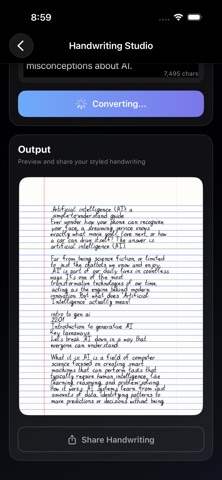 8:59
Handwriting Studio
misconceptions about AI.
7,495 chars
Converting...
Output
Preview and share your styled handwriting
Artificial intelligence (AI): a
simple-to-understand guide
Ever wonder how your phone can recognize
your face, a streaming service knows
exactly what movie you'll love next, or how
a car can drive itself? The answer is
artificial intelligence (AI).
Far from being science fiction, or limited
to just the chatbots we know and enjoy,
AI is part of our daily lives in countless
ways. It's one of the most
transformative technologies of our time,
acting as the engine behind modern
innovation. But what does "Artificial
Intelligence" actually mean?
intro to gen ai
Introduction to generative AI
Key takeaways
Let's break AI down in a way that
everyone can understand.
What it is: AI is a field of computer
science focused on creating smart
machines that can perform tasks that
typically require human intelligence, like
learning, reasoning, and problem-solving.
How it works: AI systems learn from vast
amounts of data, identifying patterns to
make predictions or decisions without being
Share Handwriting